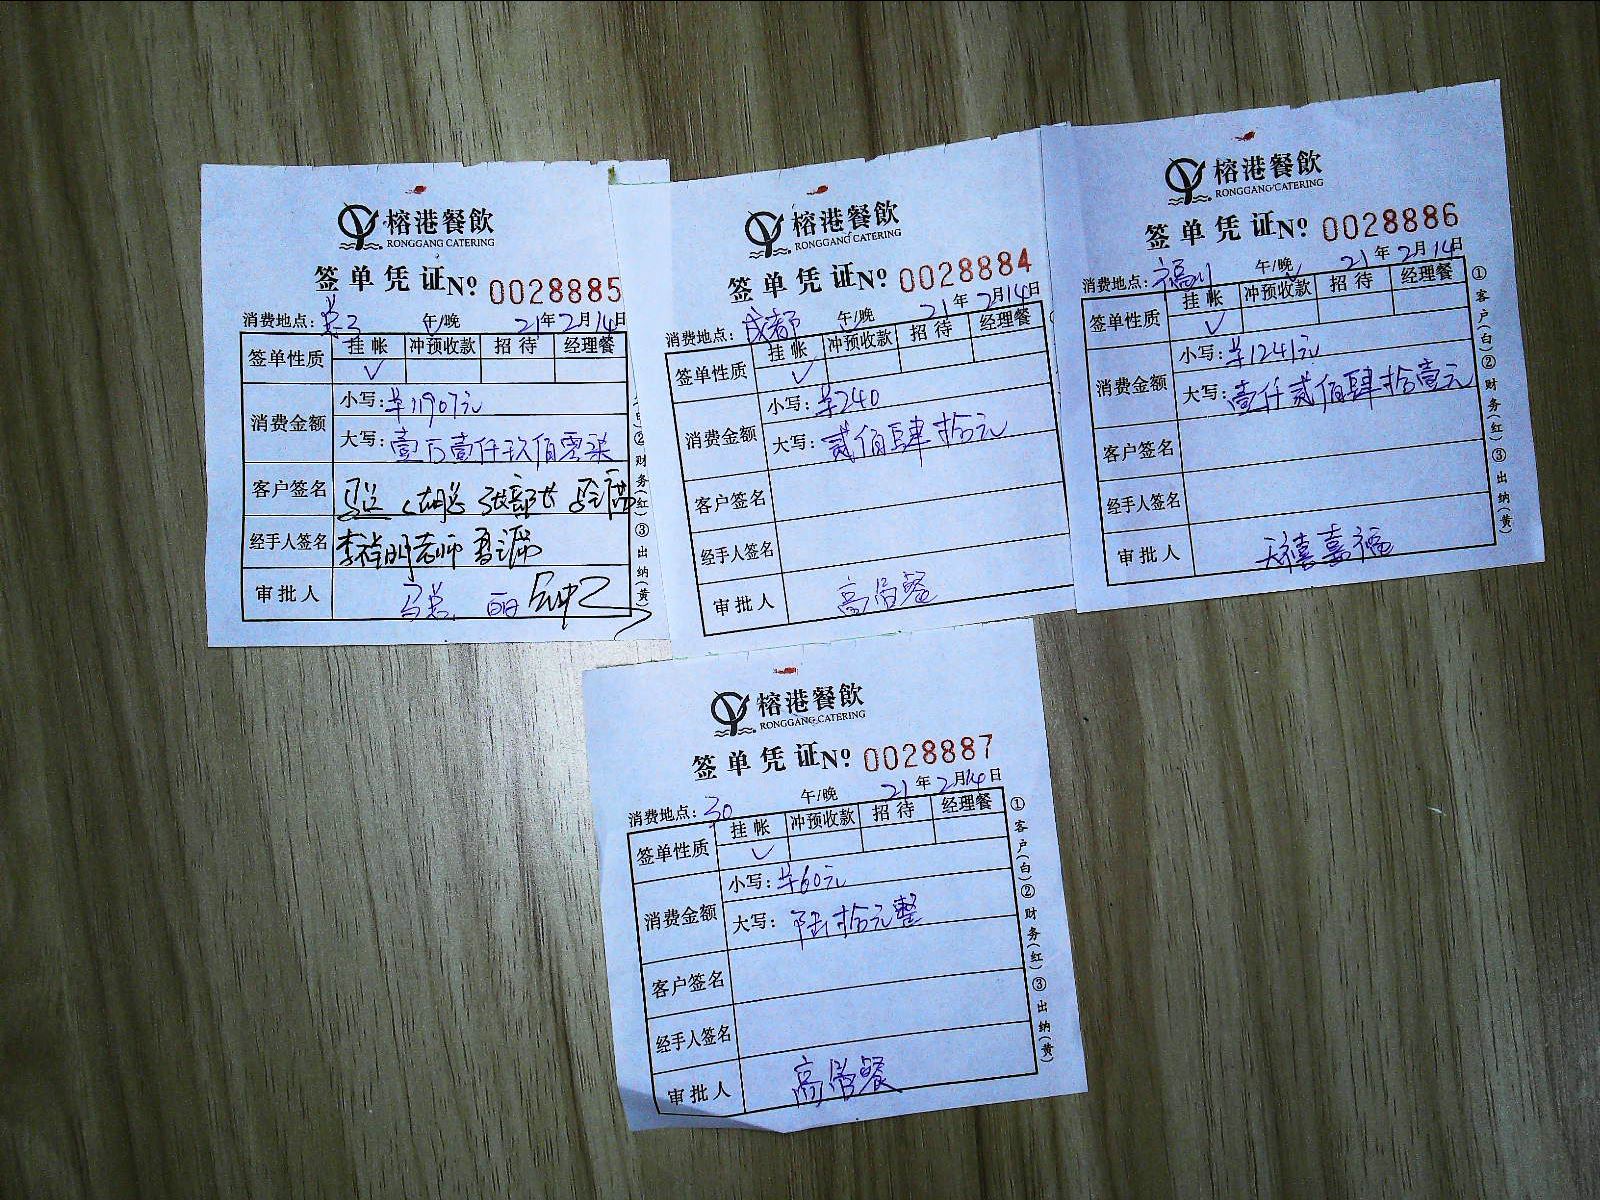 榕港餐飲
RONGGANG CATERING
签单凭证 Nº 0028885
消费地点: 午/晚 21年2月14日
签单性质 挂帐 冲预收款 招待 经理餐
✓
消费金额 小写:¥11907元
大写:壹万壹仟玖佰零柒
客户签名
经手人签名 李祥明老师
审批人 马总
②财务(红)③出纳(黄)
榕港餐飲
RONGGANG CATERING
签单凭证 Nº 0028884
消费地点:成都 午/晚 21年2月14日
签单性质 挂帐 冲预收款 招待 经理餐
✓
消费金额 小写:¥240
大写:贰佰肆拾元
客户签名
经手人签名
审批人 高管餐
榕港餐飲
RONGGANG CATERING
签单凭证 Nº 0028886
消费地点:福川 午/晚 21年2月14日
签单性质 挂帐 冲预收款 招待 经理餐
✓
消费金额 小写:¥1241元
大写:壹仟贰佰肆拾壹元
客户签名
经手人签名
审批人 天禧嘉福
①客户(白)②财务(红)③出纳(黄)
榕港餐飲
RONGGANG CATERING
签单凭证 Nº 0028887
消费地点:30 午/晚 21年2月14日
签单性质 挂帐 冲预收款 招待 经理餐
✓
消费金额 小写:¥60元
大写:陆拾元整
客户签名
经手人签名
审批人 高管餐
①客户(白)②财务(红)③出纳(黄)